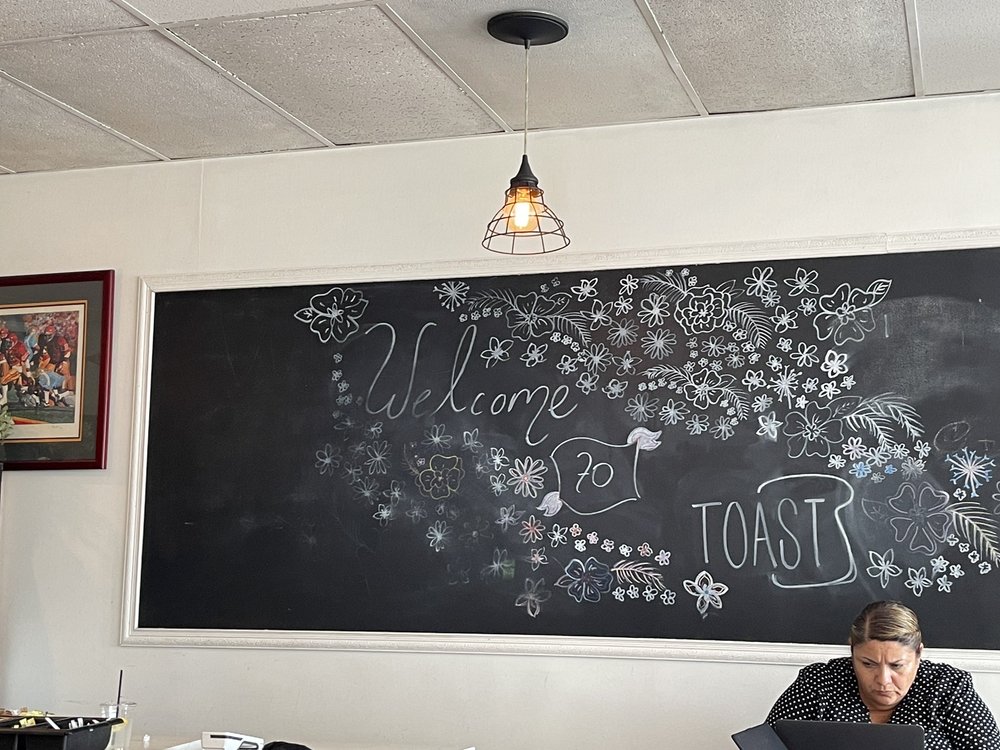 Welcome
70
TOAST